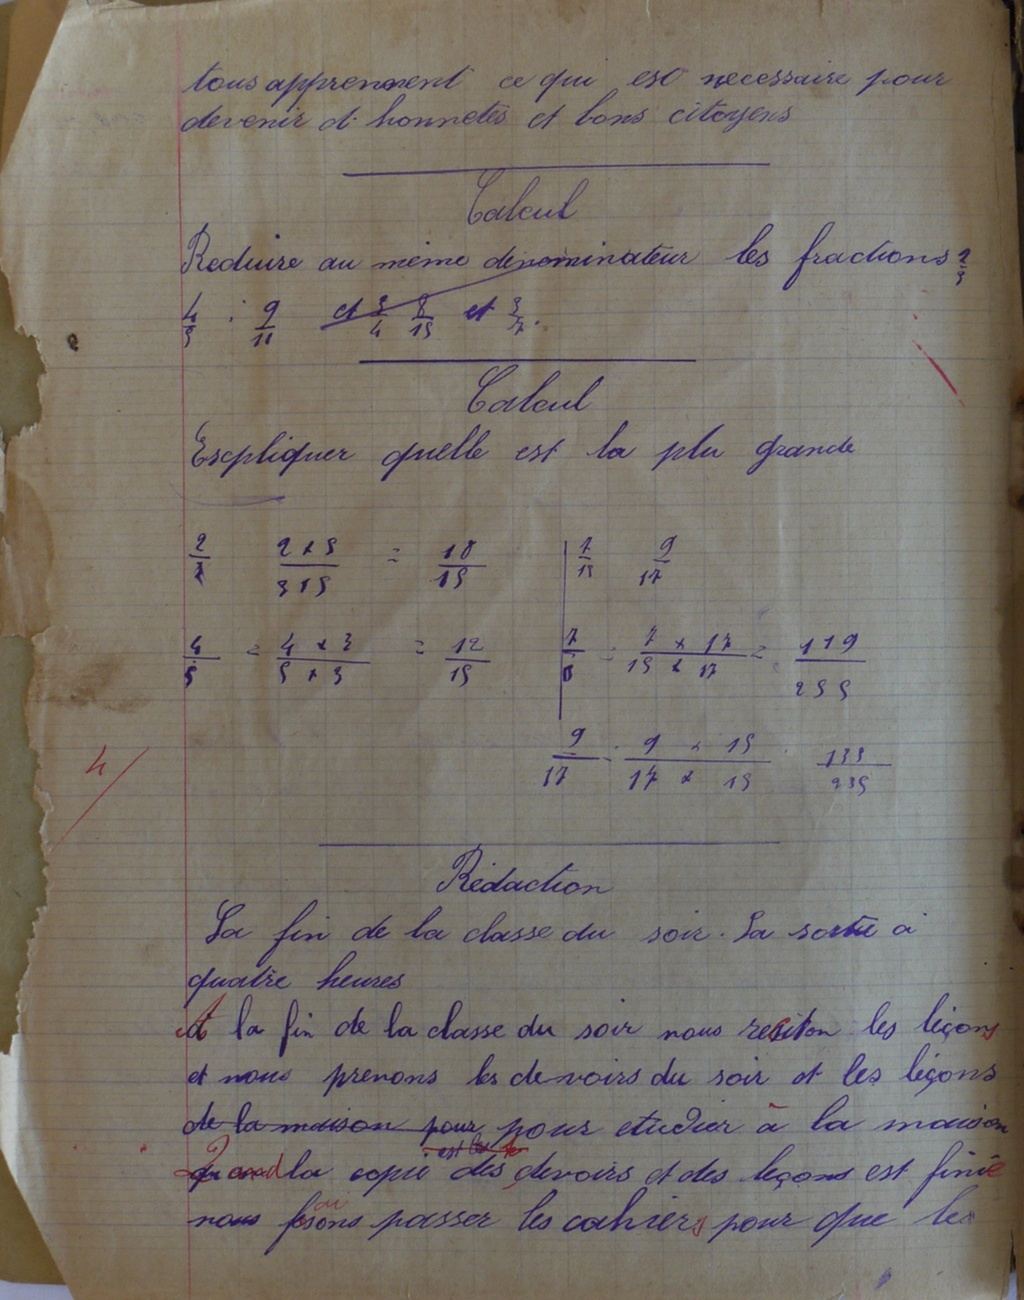 tous apprennent ce que est necessaire pour
devenir d'honnetes et bons citoyens
Calcul
Reduire au même dénominateur les fractions 2/3
4/5 : 9/11 et 3/4 8/15 et 3/7.
Calcul
Escpliquer quelle est la plu grande
2 2 x 5 = 10 7 9
3 x 5 15 15 17
4 = 4 x 3 = 12 7 = 7 x 17 = 119
5 5 x 3 15 15 x 17 255
9 9 x 15
17 17 x 15
4
Rédaction
La fin de la classe du soir. La sortie à
quatre heures
A la fin de la classe du soir nous reciton les leçons
et nous prenons les devoirs du soir et les leçons
de la maison pour pour etudier à la maison
Quand la copie des devoirs et des leçons est finie
nous faisons passer les cahiers pour que les